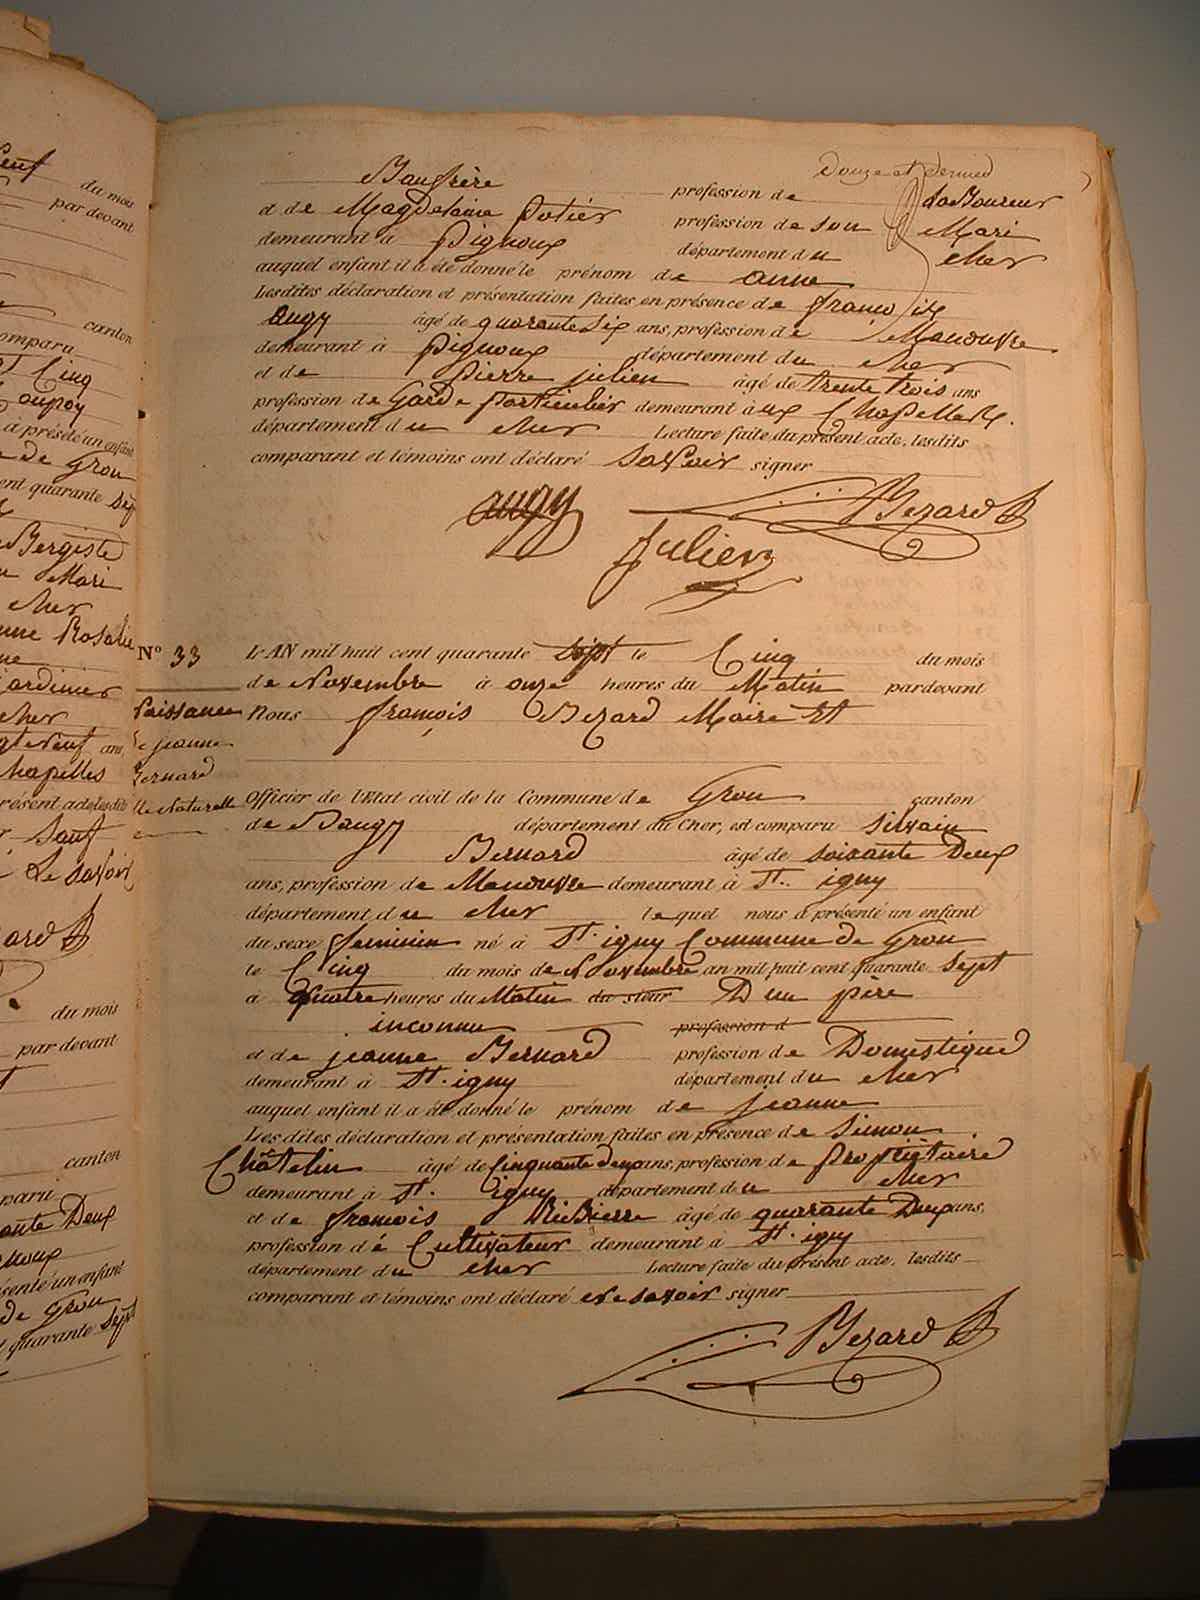 Douze et dernier
Baufrère profession de Laboureur
et de Magdelaine Potier profession de son Mari
demeurant à Pignoux département du cher
auquel enfant il a été donné le prénom de anne
Lesdites déclaration et présentation faites en présence de françois
augy âgé de quarante Six ans, profession de Manouvre
demeurant à Pignoux département du cher
et de Pierre julien âgé de trente trois ans
profession de Garde particulier demeurant à ux Chapelles.
département du cher Lecture faite du présent acte, lesdits
comparant et témoins ont déclaré savoir signer
augy Bezard
Julien
N° 33
Naissance
De jeanne
Bernard
fille Naturelle
L'AN mil huit cent quarante Sept le Cinq du mois
de Novembre à onze heures du Matin pardevant
Nous françois Bezard Maire Et
Officier de l'Etat civil de la Commune de Gron canton
de Baugy département du Cher, est comparu Silvain
Bernard âgé de soixante Deux
ans, profession de Manouvre demeurant à St. igny
département du cher lequel nous a présenté un enfant
du sexe feminin né à St. igny Commune de Gron
le Cinq du mois de Novembre an mil huit cent quarante Sept
à quatre heures du Matin du sieur D'un père
inconnu profession d
et de jeanne Bernard profession de Domestique
demeurant à St. igny département du cher
auquel enfant il a été donné le prénom de jeanne
Les dites déclaration et présentation faites en présence de Simon
Châtelin âgé de Cinquante deux ans, profession de propriétaire
demeurant à St. igny département du cher
et de françois Ribierre âgé de quarante Deux ans,
profession de Cultivateur demeurant à St. igny
département du cher Lecture faite du présent acte, lesdits
comparant et témoins ont déclaré ne savoir signer
Bezard
du mois
par devant
canton
Cinq
à présenté un enfant
de Gron
quarante Sept
Mari
cher
Rosalie
cher
chapelles
présent acte lesdits
Sauf
Le savoir
du mois
par devant
canton
Deux
de Gron
quarante Sept